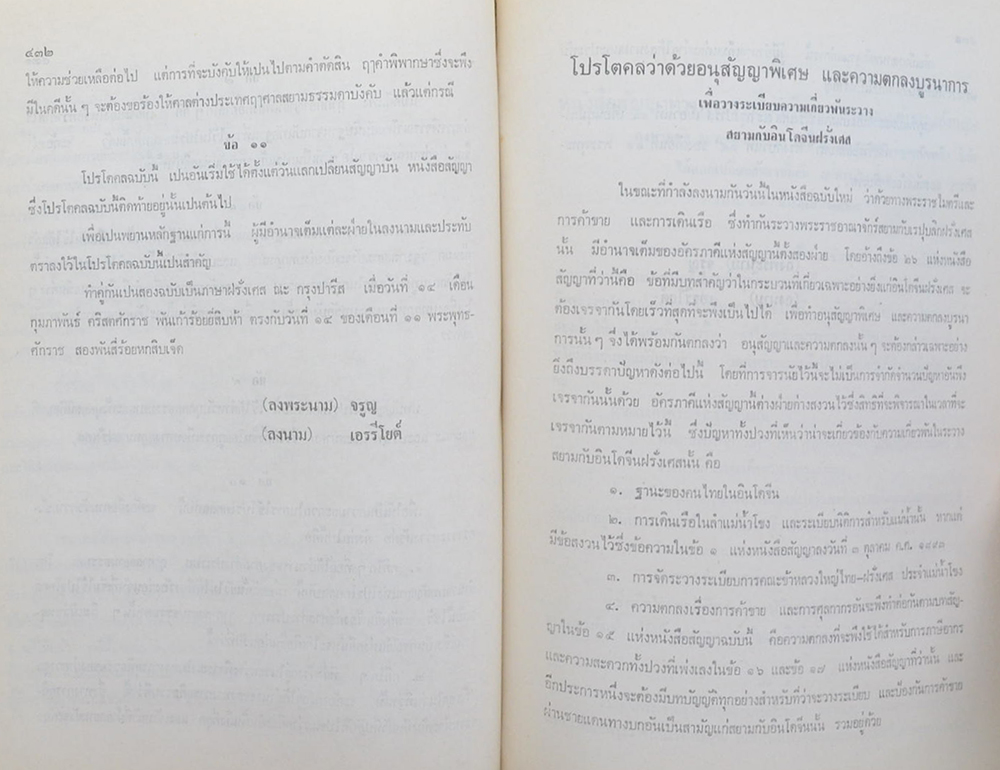 ๔๓๒
ให้ความช่วยเหลือต่อไป แต่การที่จะบังคับให้เปนไปตามคำตัดสิน ฤๅคำพิพากษาซึ่งจะพึง
มีในคดีนั้น ๆ จะต้องขอร้องให้ศาลต่างประเทศฤๅศาลสยามธรรมดาบังคับ แล้วแต่กรณี
ข้อ ๑๑
โปรโตคลฉบับนี้ เปนอันเริ่มใช้ได้ตั้งแต่วันแลกเปลี่ยนสัญญาบัน หนังสือสัญญา
ซึ่งโปรโตคลฉบับนี้ติดท้ายอยู่นั้นเปนต้นไป
เพื่อเปนพยานหลักฐานแก่การนี้ ผู้มีอำนาจเต็มแต่ละฝ่ายได้ลงนามและประทับ
ตราลงไว้ในโปรโตคลฉบับนี้เปนสำคัญ
ทำคู่กันเปนสองฉบับเป็นภาษาฝรั่งเศส ณะ กรุงปารีส เมื่อวันที่ ๑๔ เดือน
กุมภาพันธ์ คริสตศักราช พันเก้าร้อยยี่สิบห้า ตรงกับวันที่ ๑๔ ของเดือนที่ ๑๑ พระพุทธ-
ศักราช สองพันสี่ร้อยหกสิบเจ็ด
(ลงพระนาม) จรูญ
(ลงนาม) เอรริโยต์
โปรโตคลว่าด้วยอนุสัญญาพิเศษ และความตกลงบูรนาการ
เพื่อวางระเบียบความเกี่ยวพันระวาง
สยามกับอินโดจีนฝรั่งเศส
ในขณะที่กำลังลงนามกันวันนี้ในหนังสือฉบับใหม่ ว่าด้วยทางพระราชไมตรีและ
การค้าขาย และการเดินเรือ ซึ่งทำกันระวางพระราชอาณาจักร์สยามกับเรปุบลิกฝรั่งเศส
นั้น มีอำนาจเต็มของอัครภาคีแห่งสัญญานี้ทั้งสองฝ่าย โดยอ้างถึงข้อ ๒๖ แห่งหนังสือ
สัญญาที่ว่านี้คือ ข้อที่มีบทสำคัญว่าในกระบวนที่เกี่ยวเฉพาะอย่างยิ่งแก่อินโดจีนฝรั่งเศส จะ
ต้องเจรจากันโดยเร็วที่สุดที่จะพึงเป็นไปได้ เพื่อทำอนุสัญญาพิเศษ และความตกลงบูรนา
การนั้น ๆ จึงได้พร้อมกันตกลงว่า อนุสัญญาและความตกลงนั้น ๆ จะต้องกล่าวเฉพาะอย่าง
ยิ่งถึงบรรดาปัญหาดังต่อไปนี้ โดยที่การจารนัยไว้นี้จะไม่เป็นการจำกัดจำนวนปัญหาอันพึง
เจรจากันนั้นด้วย อัครภาคีแห่งสัญญานี้ต่างฝ่ายต่างสงวนไว้ซึ่งสิทธิที่จะพิจารณาในเวลาที่จะ
เจรจากันตามหมายไว้นี้ ซึ่งปัญหาทั้งปวงที่เห็นว่าน่าจะเกี่ยวข้องกับความเกี่ยวพันในระวาง
สยามกับอินโดจีนฝรั่งเศสนั้น คือ
๑. ฐานะของคนไทยในอินโดจีน
๒. การเดินเรือในลำแม่น้ำโขง และระเบียบนิติการสำหรับแม่น้ำนั้น หากแต่
มีข้อสงวนไว้ซึ่งข้อความในข้อ ๑ แห่งหนังสือสัญญาลงวันที่ ๓ ตุลาคม ค.ศ. ๑๘๙๓
๓. การจัดระวางระเบียบการคณะข้าหลวงใหญ่ไทย-ฝรั่งเศส ประจำแม่น้ำโขง
๔. ความตกลงเรื่องการค้าขาย และการศุลกากรอันจะพึงทำต่อกันตามบทสัญ-
ญาในข้อ ๑๕ แห่งหนังสือสัญญาฉบับนี้ คือความตกลงที่จะพึงใช้ได้สำหรับการภาษีอากร
และความสะดวกทั้งปวงที่เพ่งเล็งในข้อ ๑๖ และข้อ ๑๗ แห่งหนังสือสัญญาที่ว่านั้น และ
อีกประการหนึ่งจะต้องมีบทบัญญัติทุกอย่างสำหรับที่ว่าจะวางระเบียบ และป้องกันการค้าขาย
ผ่านชายแดนทางบกอันเป็นสามัญแก่สยามกับอินโดจีนนั้น รวมอยู่ด้วย